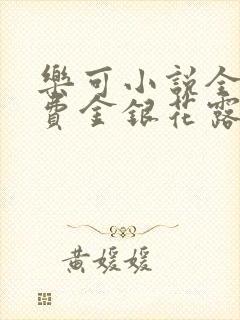 樂可小說全
費金銀花露
黃媛媛